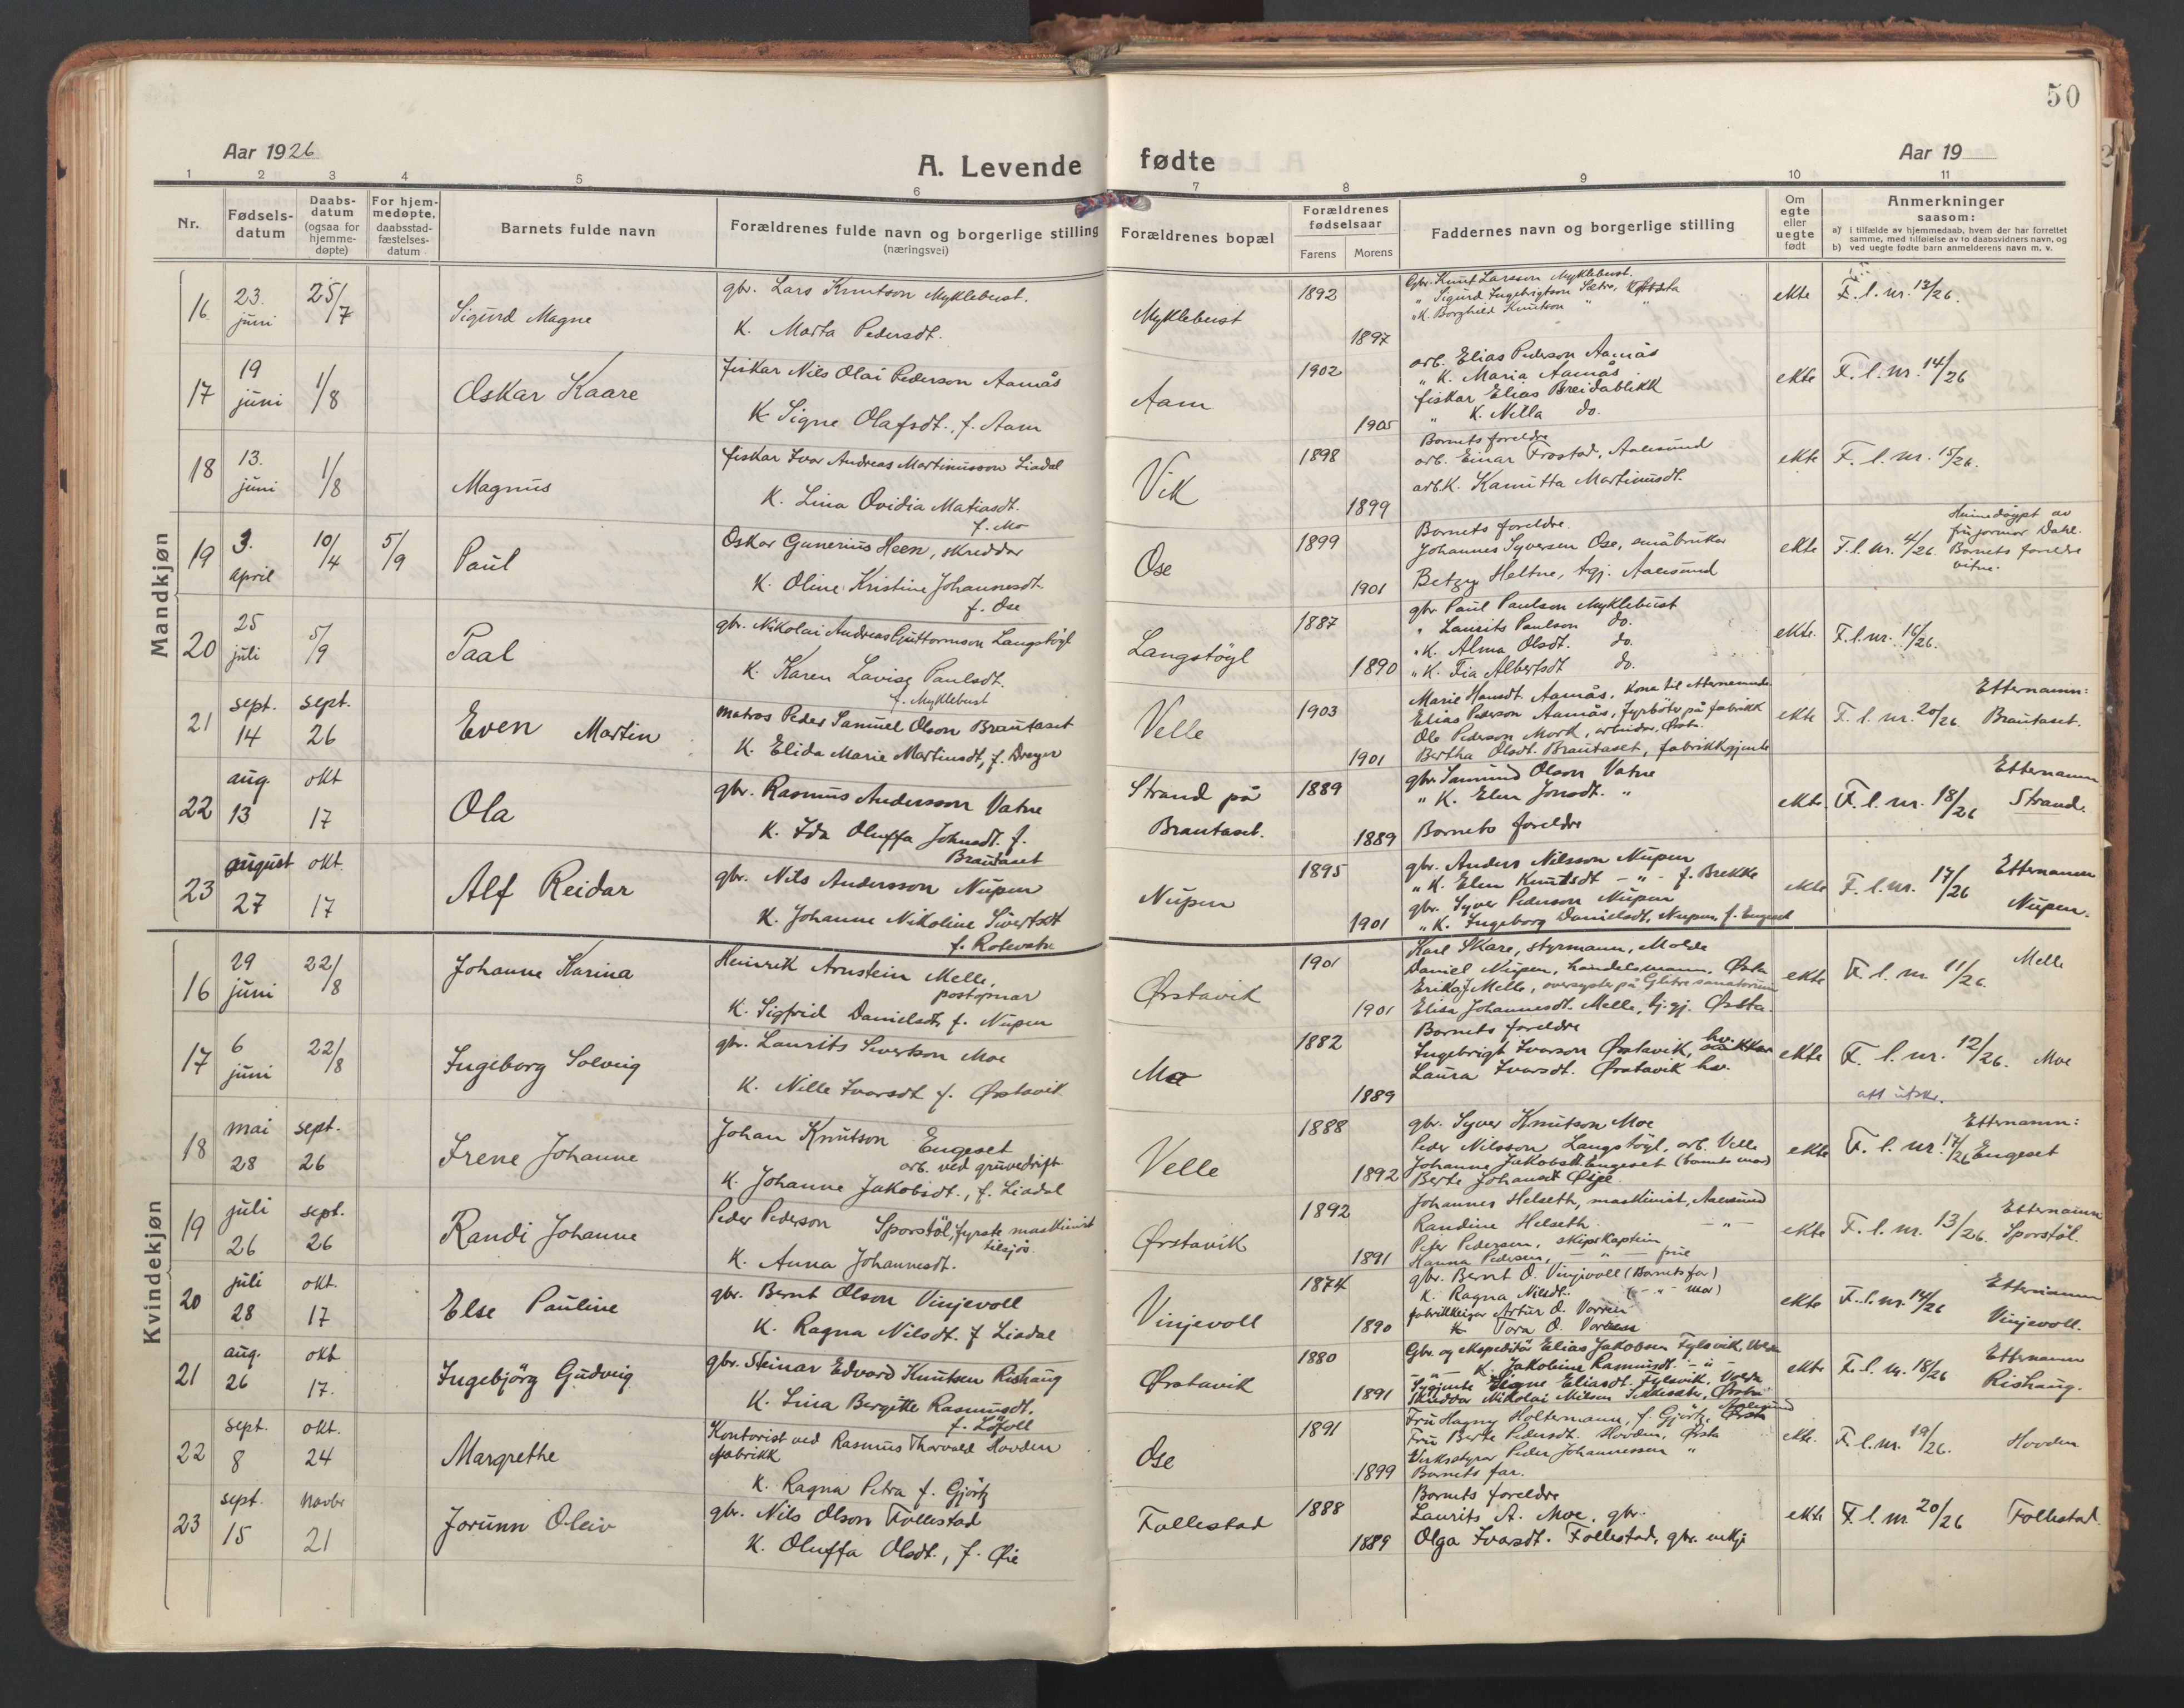 50
Aar 1926
A. Levende fødte
Aar 19
1 2 3 4 5 6 7 8 9 10 11
Nr.
Fødsels-
datum
Daabs-
datum
(ogsaa for
hjemme-
døpte)
For hjem-
medøpte,
daabsstad-
fæstelses-
datum
Barnets fulde navn
Forældrenes fulde navn og borgerlige stilling
(næringsvei)
Forældrenes bopæl
Forældrenes
fødselsaar
Farens Morens
Faddernes navn og borgerlige stilling
Om
egte
eller
uegte
født
Anmerkninger
saasom:
a) i tilfælde av hjemmedaab, hvem der har forrettet
samme, med tilføielse av to daabsvidners navn, og
b) ved uegte fødte barn anmelderens navn m. v.
Mandkjøn
16 23. juni 25/7 Sigurd Magne
gbr. Lars Knutson Myklebust.
K. Marta Pedersdt.
Myklebust 1892 1897
Gbr. Knut Larsson Myklebust.
" Sigurd Ingebrigtson Sætre,
"K. Borghild Knutson " "
ekte F. l. nr. 13/26.
17 19 juni 1/8 Oskar Kaare
fiskar Nils Olai Pederson Aamås
K. Signe Olafsdt., f. Aam
Aam 1902 1905
arb. Elias Pederson Aamås
" K. Maria Aamås
fiskar Elias Breidablikk
" K. Nilla do.
ekte F. l. nr. 14/26
18 13. juni 1/8 Magnus
fiskar Ivar Andreas Martinusson Liadal
K. Lina Ovidia Matiasdt.
f. Mo
Vik 1898 1899
Barnets foreldre
arb. Einar Frostad, Aalesund
arb.K. Kamitta Martinusdt.
ekte F. l. nr. 15/26.
19 3. april 10/4 5/9 Paul
Oskar Gunerius Heen, skreddar
K. Oline Kristine Johannesdt.
f. Ose
Ose 1899 1901
Barnets foreldre.
Johannes Syversen Ose, småbrukar
Betzy Heltne, tgj. Aalesund
ekte F. l. nr. 4/26.
Heimedøypt av
frú jormor Dahl.
Barnets foreldre
vitne.
20 25 juli 5/9 Paal
gbr. Nikolai Andreas Guttormson Langstøyl
K. Karen Lavise Paulsdt.
f. Myklebust
Langstøyl 1887 1890
gbr. Paul Paulson Myklebust
" Laurits Paulson do.
"K. Alma Olsdt. do.
"K. Fia Albertsdt do.
ekte. F. l. nr. 16/26.
21 sept. 14 sept. 26 Even Martin
matros Peder Samuel Olson Brautaset
K. Elida Marie Martinsdt, f. Dreyer
Velle 1903 1901
Marie Hansdt. Aamås, kona til etternemnde
Elias Pederson Aamås, fyrbøter på fabrikk
Ole Pederson Mork, arbeidar, Ørsta.
Bertha Olsdt. Brautaset, fabrikkgjente
ekte F. l. nr. 20/26
Etternamn:
Brautaset.
22 aug. 13 okt 17 Ola
gbr. Rasmus Andersson Vatne
K. Ida Oluffa Johnsdt. f.
Brautaset
Strand på
Brautaset. 1889 1889
gbr. Samund Olson Vatne
" K. Elen Jonsdt. "
Barnets foreldre
ekte. F. l. nr. 18/26
Etternamn
Strand.
23 august 27 okt. 17 Alf Reidar
gbr. Nils Andersson Nupen
K. Johanne Nikoline Sivertsdt
f. Rotevatn
Nupen 1895 1901
gbr. Anders Nilsson Nupen
"K. Elen Knutsdt - " - f. Brekke
gbr. Syver Pederson Nupen
"K. Ingeborg Danielsdt, Nupen, f. Engeset
ekte F. l. nr. 17/26
Etternamn
Nupen.
Kvindekjøn
16 29 juni 22/8 Johanne Karina
Heinrik Arnstein Melle,
postopnar
K. Sigfrid Danielsdt, f. Nupen
Ørstavik 1901 1901
Karl Skare, styrmann, Molde
Daniel Nupen, handelsmann, Ørsta
Erika J Melle, oversyster på Glitre sanatorium
Elisa Johannesdt. Melle, tj.gj. Ørsta.
ekte F. l. nr. 11/26.
Melle
17 6 juni 22/8 Ingeborg Solveig
gbr. Laurits Sivertson Moe
K. Nille Ivarsdt f. Ørstavik
Moe 1882 1889
Barnets foreldre
Ingebrigt Ivarson Ørstavik, hv.
Laura Ivarsdt. Ørstavik hv.
ekte F. l. nr. 12/26. Moe
att utskr.
18 mai 28 sept. 26 Irene Johanne
Johan Knutson Engeset
arb. ved gruvedrift
K. Johanne Jakobsdt., f. Liadal
Velle 1888 1892
gbr. Syver Knutson Moe
Peder Nilsson Langstøyl, arb. Velle
Johanne Jakobsdt Engeset (barnets mor)
Berte Johansdt Osje
ekte F. l. nr. 17/26
Etternamn:
Engeset
19 juli 26 sept. 26 Randi Johanne
Peder Pederson Sporstøl, fyrste maskinist
tilsjøs.
K. Anna Johannesdt.
Ørstavik 1892 1891
Johannes Helseth, maskinist, Aalesund
Randine Helseth - " -
Peter Pedersen, skipskaptein
Hanna Pedersen, - " - frue
ekte F. l. nr. 13/26.
Etternamn
Sporstøl.
20 juli 28 okt. 17 Else Pauline
gbr. Bernt Olson Vinjevoll
K. Ragna Nilsdt. f Liadal
Vinjevoll 1874 1890
gbr. Bernt O. Vinjevoll (Barnets far)
K. Ragna Nilsdt. (- " - mor)
fabrikkeigar Artur O. Vorren
K Tora O. Vorren
ekte F. l. nr. 14/26
Etternamn
Vinjevoll.
21 aug. 26 okt 17. Ingebjörg Gudveig
gbr. Steinar Edvard Knutsen Rishaug
K. Lina Bergitte Rasmusdt.
f. Løvoll
Ørstavik 1880 1891
Gbr. og ekspeditør Elias Jakobsen Fylsvik, Volda
- " - K. Jakobine Rasmusdt. - " -
Sygjente Signe Eliasdt. Fylsvik, Volda
Skreddar Nikolai Nilsen Sekkesæter, Ørsta
ekte F. l. nr. 18/26
Etternamn
Rishaug.
22 sept. 8 okt. 24 Margrethe
Kontorist ved Rasmus Thorvald Hovden
fabrikk
K. Ragna Petra f. Gjörtz
Ose 1891 1899
Fru Hagny Holtermann, f. Gjörtz, Aalesund
Fru Berte Pedersdt. Hovden, Ørsta
Virksstyrar Peder Johannessen "
Barnets far.
ekte. F. l. nr. 19/26.
Hovden
23 sept. 15 novbr 21 Jorunn Oleiv
gbr. Nils Olson Follestad
K. Oluffa Olsdt., f. Øie
Follestad 1888 1889
Barnets foreldre
Laurits A. Moe, gbr.
Olga Ivarsdt. Follestad, gbr. enkje
ekte F. l. nr 20/26 Follestad.